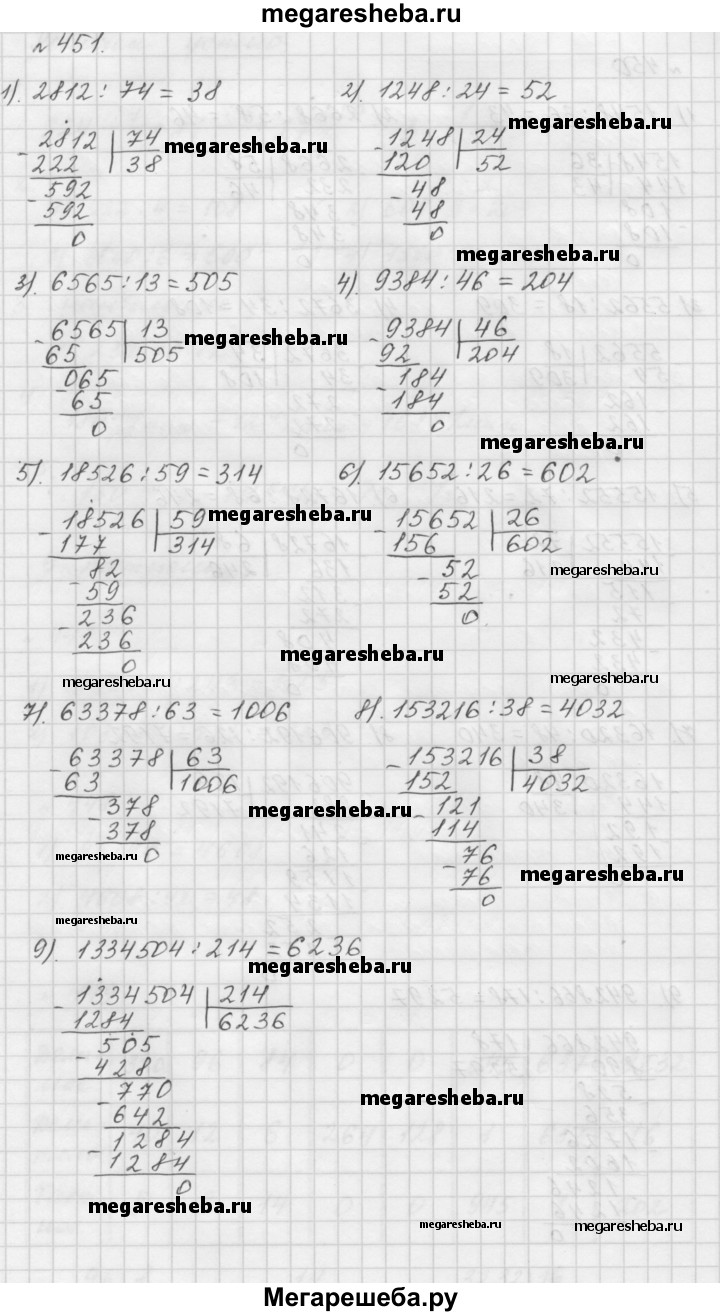 megaresheba.ru
№ 451.
1). 2812 : 74 = 38
2812 | 74
222 | 38
592
592
0
megaresheba.ru
2). 1248 : 24 = 52
1248 | 24
120 | 52
48
48
0
megaresheba.ru
megaresheba.ru
3). 6565 : 13 = 505
6565 | 13
65 | 505
065
65
0
megaresheba.ru
4). 9384 : 46 = 204
9384 | 46
92 | 204
184
184
0
megaresheba.ru
megaresheba.ru
5). 18526 : 59 = 314
18526 | 59
177 | 314
82
59
236
236
0
megaresheba.ru
megaresheba.ru
6). 15652 : 26 = 602
15652 | 26
156 | 602
52
52
0
megaresheba.ru
megaresheba.ru
megaresheba.ru
7). 63378 : 63 = 1006
63378 | 63
63 | 1006
378
378
0
megaresheba.ru
megaresheba.ru
8). 153216 : 38 = 4032
153216 | 38
152 | 4032
121
114
76
76
0
megaresheba.ru
megaresheba.ru
9). 1334504 : 214 = 6236
megaresheba.ru
1334504 | 214
1284 | 6236
505
428
770
642
1284
1284
0
megaresheba.ru
megaresheba.ru
megaresheba.ru
megaresheba.ru
Мегарешеба.ру